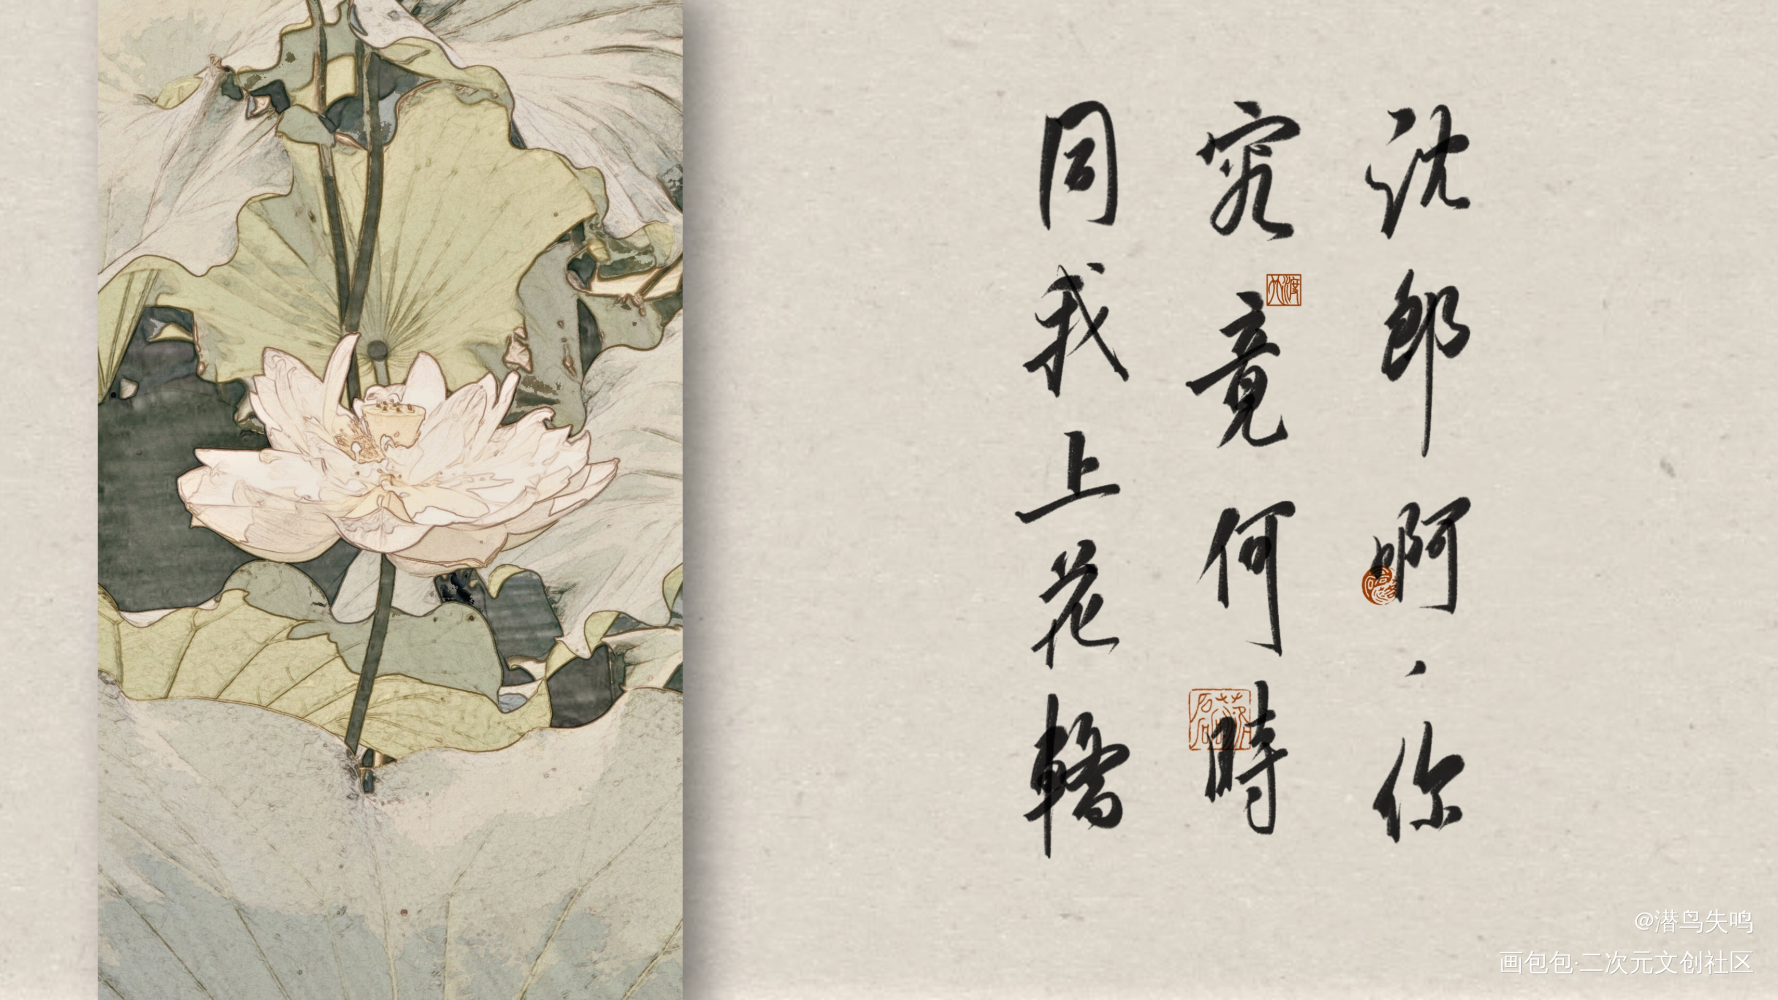 沈郎啊，你
究竟何時
同我上花轎
@潜鸟失鸣
画包包·二次元文创社区